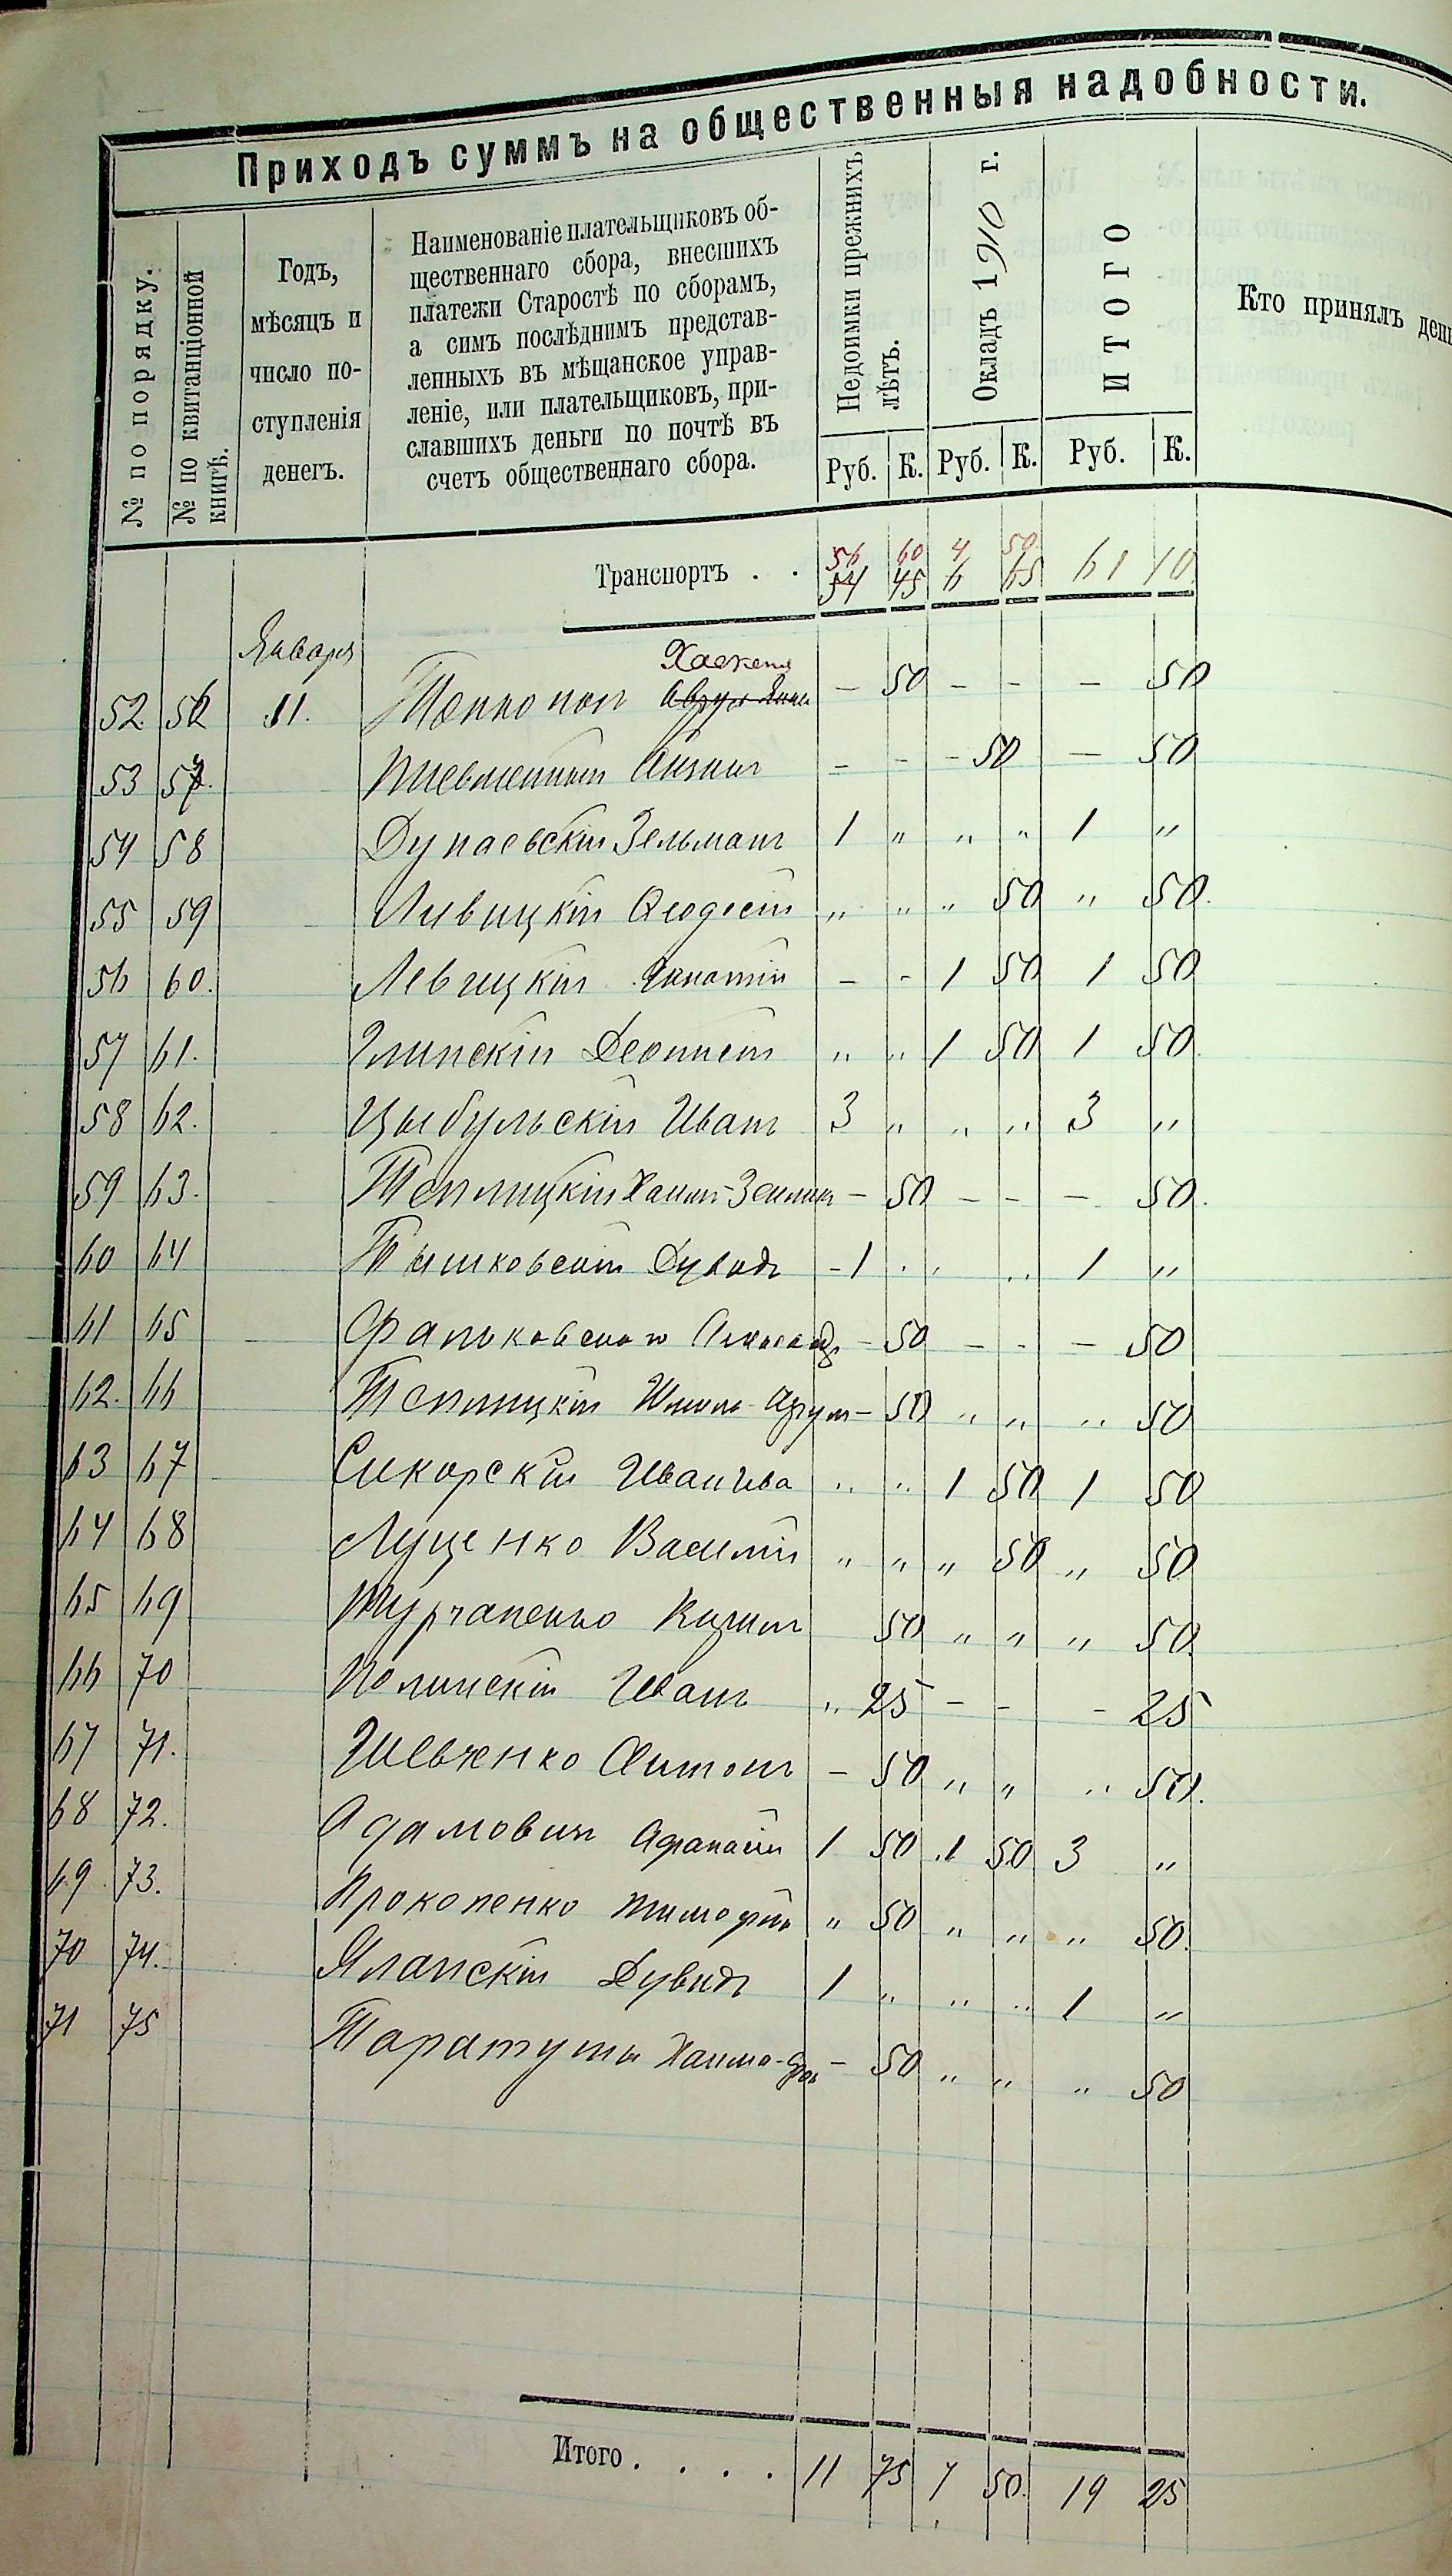 Приходъ суммъ на общественныя надобности.
№ по порядку.
№ по квитанціонной книгѣ.
Годъ,
мѣсяцъ и
число по-
ступленія
денегъ.
Наименованіе плательщиковъ об-
щественнаго сбора, внесшихъ
платежи Старостѣ по сборамъ,
а симъ послѣднимъ представ-
ленныхъ въ мѣщанское управ-
леніе, или плательщиковъ, при-
славшихъ деньги по почтѣ въ
счетъ общественнаго сбора.
Недоимки прежнихъ лѣтъ.
Окладъ 1910 г.
ИТОГО
Кто принялъ
Руб. К. Руб. К. Руб. К.
56 60 4 50
Транспортъ . . 54 45 6 65 61 10
Января
52 56 11. – 50 – – – 50
53 57. – – – 50 – 50
54 58 Дунаевскій Зельманъ 1 „ „ „ 1 „
55 59 Ливицкій Ѳеодосій „ „ „ 50 „ 50.
56 60. Левицкій Игнатій – – 1 50 1 50
57 61. Глинскій Леонтій „ „ 1 50 1 50
58 62. Цыбульскій Иванъ 3 „ „ „ 3 „
59 63. Теплицкій Хаимъ-Зельманъ – 50 – – – 50.
60 64 Тышковскій Дувидъ – 1 „ „ „ 1 „
61 65 Фальковскаго – 50 – – – 50
62. 66 Теплицкій – 50 „ „ „ 50
63 67 Сикорскій Иванъ „ „ 1 50 1 50
64 68 Луценко Василій „ „ „ 50 „ 50
65 69 50 „ „ „ 50.
66 70 Полинскій Иванъ „ 25 – – – 25
67 71. Шевченко Антонъ – 50 „ „ „ 50.
68 72. Адамовичъ Афанасій 1 50 1 50 3 „
69 73. Прокопенко Тимофей „ 50 „ „ „ 50.
70 74. Яланскій Дувидъ 1 „ „ „ 1 „
71 75 Таратута – 50 „ „ „ 50
Итого . . . . 11 75 7 50. 19 25